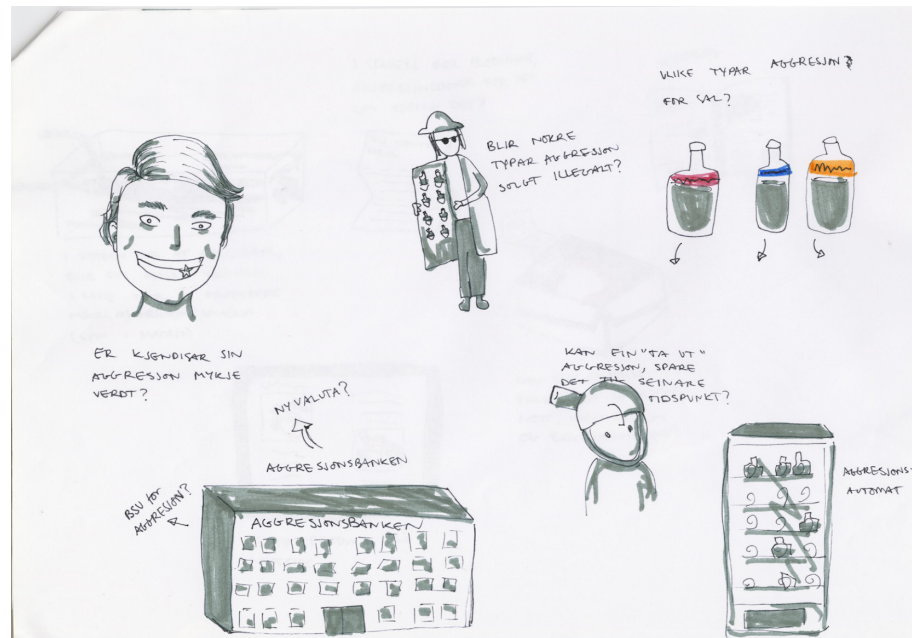 ULIKE TYPAR AGGRESJON?
FOR SAL?
BLIR NOKRE
TYPAR AGGRESJON
SOLGT ILLEGALT?
ER KJENDISAR SIN
AGGRESJON MYKJE
VERDT?
KAN EIN "TA UT"
AGGRESJON, SPARE
DET TIL SEINARE
TIDSPUNKT?
NY VALUTA?
AGGRESJONSBANKEN
BSU for
AGGRESJON?
AGGRESJONSBANKEN
AGGRESJONS-
AUTOMAT